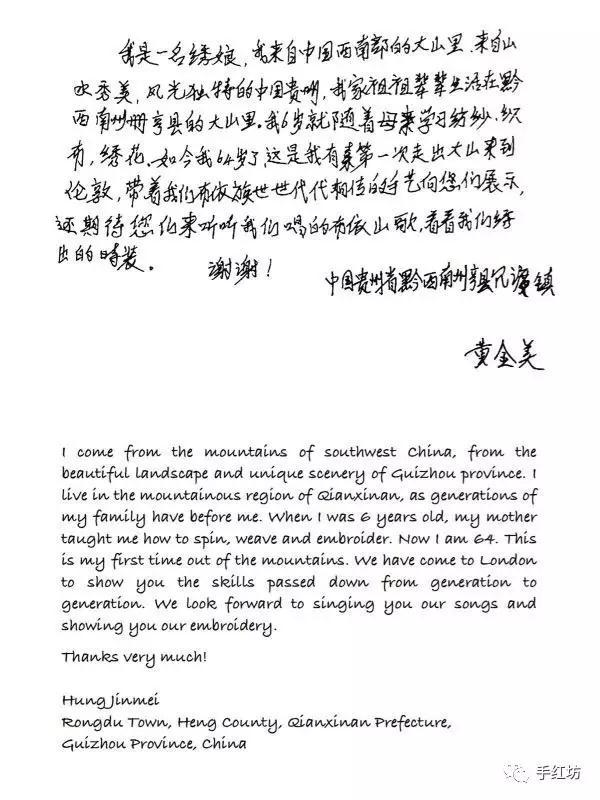 我是一名绣娘,我来自中国西南部的大山里.来自山
水秀美,风光独特的中国贵州,我家祖祖辈辈生活在黔
西南州册亨县的大山里.我6岁就随着母亲学习纺纱.织
布,绣花.如今我64岁了这是我有来第一次走出大山来到
伦敦,带着我们布依族世世代代相传的手艺向您们展示,
还期待您们来听听我们唱的布依山歌,看看我们绣
出的時装。 谢谢!
中国贵州省黔西南州亨县冗渡镇
黄金美
I come from the mountains of southwest China, from the
beautiful landscape and unique scenery of Guizhou province. I
live in the mountainous region of Qianxinan, as generations of
my family have before me. When I was 6 years old, my mother
taught me how to spin, weave and embroider. Now I am 64. This
is my first time out of the mountains. We have come to London
to show you the skills passed down from generation to
generation. We look forward to singing you our songs and
showing you our embroidery.
Thanks very much!
Hung Jinmei
Rongdu Town, Heng County, Qianxinan Prefecture,
Guizhou Province, China
手红坊